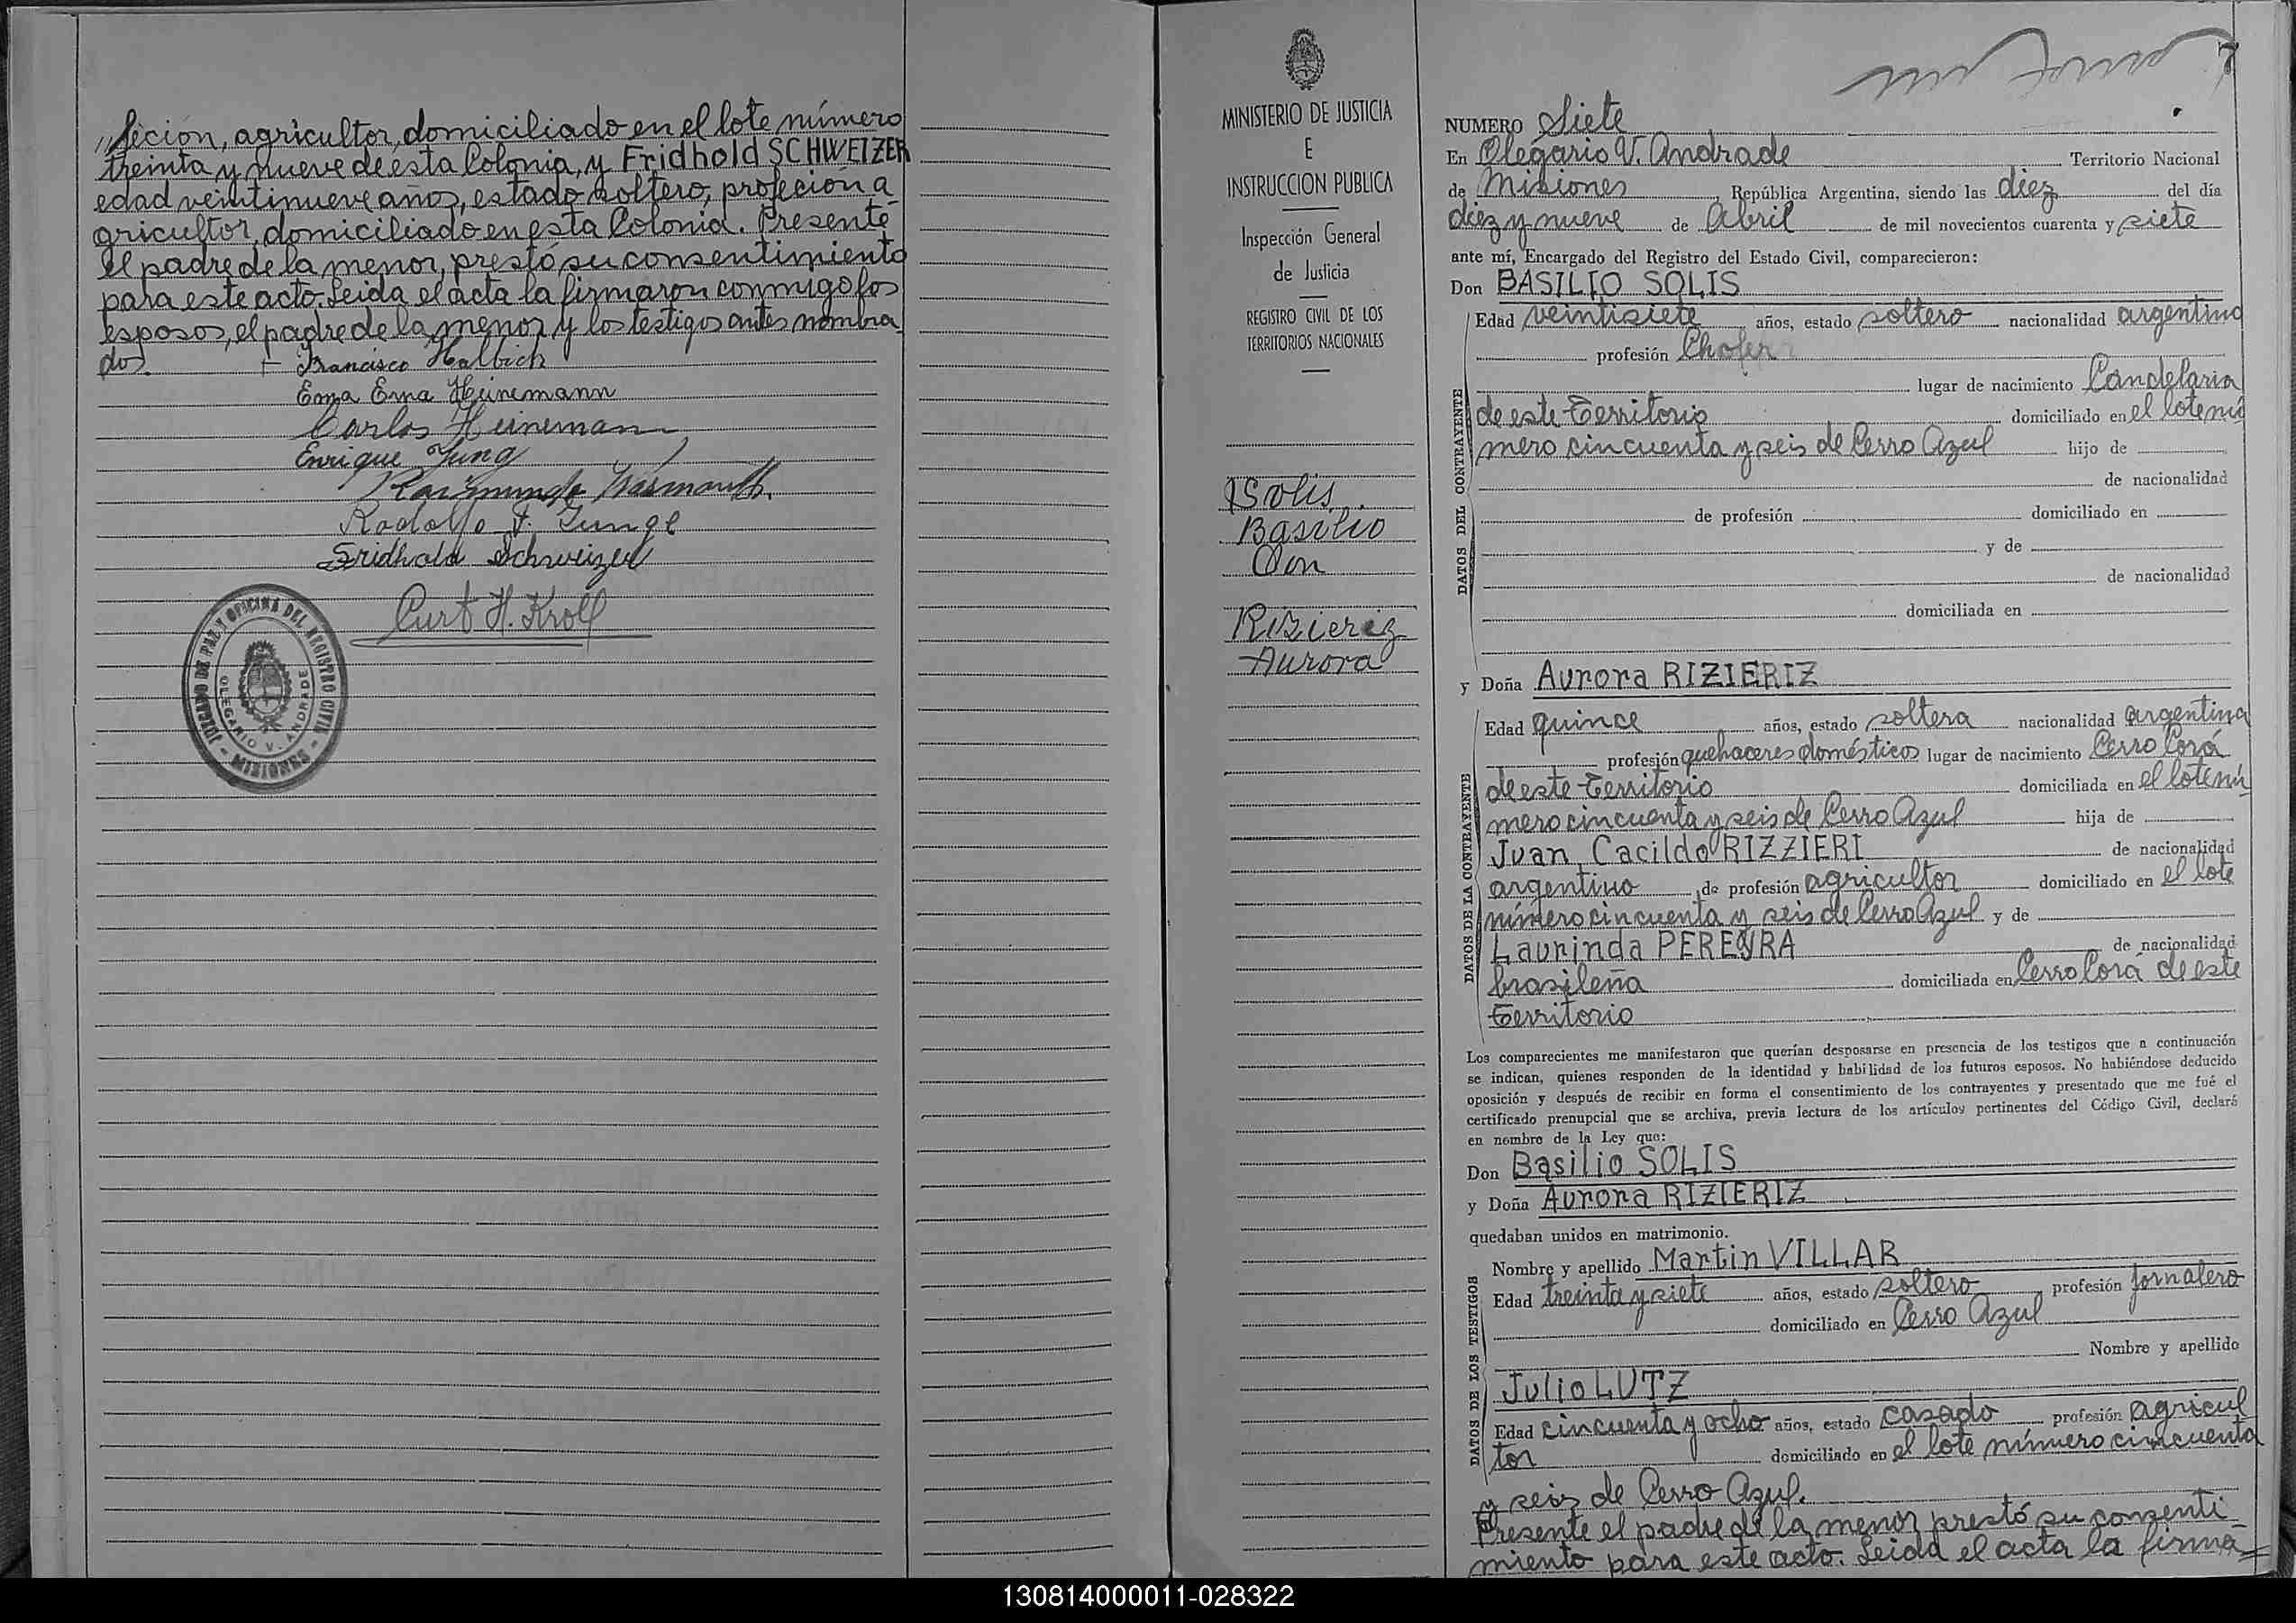 // feción, agricultor, domiciliado en el lote número
treinta y nueve de esta Colonia, y Fridhold SCHWEIZER
edad veintinueve años, estado soltero, profeción a
gricultor, domiciliado en esta Colonia. Presente
el padre de la menor, prestó su consentimiento
para este acto. Leida el acta la firmaron conmigo los
esposos, el padre de la menor y los testigos antes nombra
dos.
+ Francisco Halbich
Ema Erna Heinemann
Carlos Heineman
Enrique Jung
Raimundo
Rodolfo F. Junge
Fridhold Schweizer
Curt H. Kroll
JUZGADO DE PAZ Y OFICINA DEL REGISTRO CIVIL
OLEGARIO V. ANDRADE
- MISIONES -
MINISTERIO DE JUSTICIA
E
INSTRUCCION PUBLICA
Inspección General
de Justicia
REGISTRO CIVIL DE LOS
TERRITORIOS NACIONALES
Solis
Basilio
Con
Rizieriz
Aurora
7
NUMERO Siete
En Olegario V. Andrade Territorio Nacional
de Misiones, República Argentina, siendo las diez del día
diez y nueve de Abril de mil novecientos cuarenta y siete
ante mí, Encargado del Registro del Estado Civil, comparecieron:
Don BASILIO SOLIS
DATOS DEL CONTRAYENTE
Edad veintisiete años, estado soltero nacionalidad argentino
profesión Chofer
lugar de nacimiento Candelaria
de este Territorio domiciliado en el lote nú
mero cincuenta y seis de Cerro Azul hijo de
de nacionalidad
de profesión domiciliado en
y de
de nacionalidad
domiciliada en
y Doña Aurora RIZIERIZ
DATOS DE LA CONTRAYENTE
Edad quince años, estado soltera nacionalidad argentina
profesión quehaceres domésticos lugar de nacimiento Cerro Corá
de este Territorio domiciliada en el lote nú
mero cincuenta y seis de Cerro Azul hija de
Juan Cacildo RIZZIERI de nacionalidad
argentino de profesión agricultor domiciliado en el lote
número cincuenta y seis de Cerro Azul y de
Laurinda PEREYRA de nacionalidad
brasileña domiciliada en Cerro Corá de este
Territorio
Los comparecientes me manifestaron que querían desposarse en presencia de los testigos que a continuación
se indican, quienes responden de la identidad y habilidad de los futuros esposos. No habiéndose deducido
oposición y después de recibir en forma el consentimiento de los contrayentes y presentado que me fué el
certificado prenupcial que se archiva, previa lectura de los artículos pertinentes del Código Civil, declaré
en nombre de la Ley que:
Don Basilio SOLIS
y Doña Aurora RIZIERIZ
quedaban unidos en matrimonio.
DATOS DE LOS TESTIGOS
Nombre y apellido Martin VILLAR
Edad treinta y siete años, estado soltero, profesión jornalero
domiciliado en Cerro Azul
Nombre y apellido
Julio LUTZ
Edad cincuenta y ocho años, estado casado profesión agricul
tor domiciliado en el lote número cincuenta
y seis de Cerro Azul.
Presente el padre de la menor prestó su consenti
miento para este acto. Leida el acta la firma=
130814000011-028322